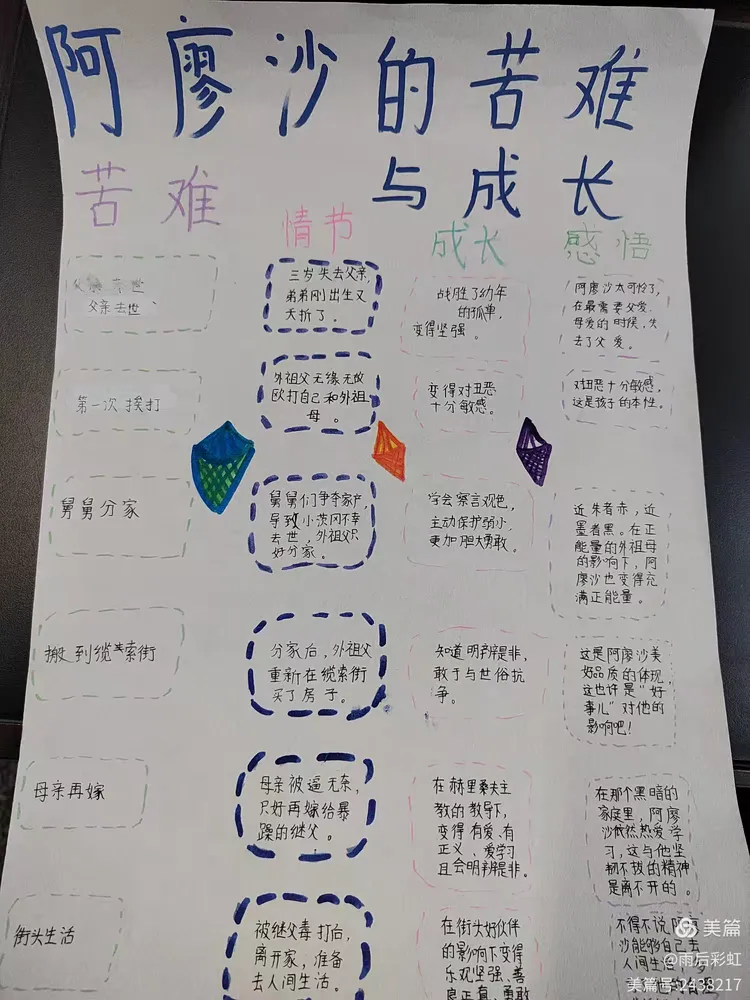 阿廖沙的苦难
与成长
苦难
情节
成长
感悟
父亲去世
父亲去世、
三岁失去父亲,
弟弟刚出生又
夭折了。
战胜了幼年
的孤单,
变得坚强。
阿廖沙太可怜了,
在最需要父爱、
母爱的时候,失
去了父爱。
第一次挨打
外祖父无缘无故
殴打自己和外祖
母。
变得对丑恶
十分敏感。
对丑恶十分敏感,
这是孩子的本性。
舅舅分家
舅舅们争夺家产,
导致小茨冈不幸
去世,外祖父只
好分家。
学会察言观色,
主动保护弱小,
更加胆大勇敢。
近朱者赤,近
墨者黑。在正
能量的外祖母
的影响下,阿
廖沙也变得充
满正能量。
搬到缆索街
分家后,外祖父
重新在缆索街
买了房子。
知道明辨是非,
敢于与世俗抗
争。
这是阿廖沙美
好品质的体现,
这也许是“好
事儿”对他的
影响吧!
母亲再嫁
母亲被逼无奈,
只好再嫁给暴
躁的继父。
在赫里桑夫主
教的教导下,
变得有爱、有
正义、爱学习
且会明辨是非。
在那个黑暗的
家庭里,阿廖
沙依然热爱学
习,这与他坚
韧不拔的精神
是离不开的。
街头生活
被继父毒打后,
离开家,准备
去人间生活。
在街头好伙伴
的影响下变得
乐观坚强、善
良正直、勇敢
不得不说阿
沙能够自己去
人间生活,
美篇
@雨后彩虹
美篇号:2438217